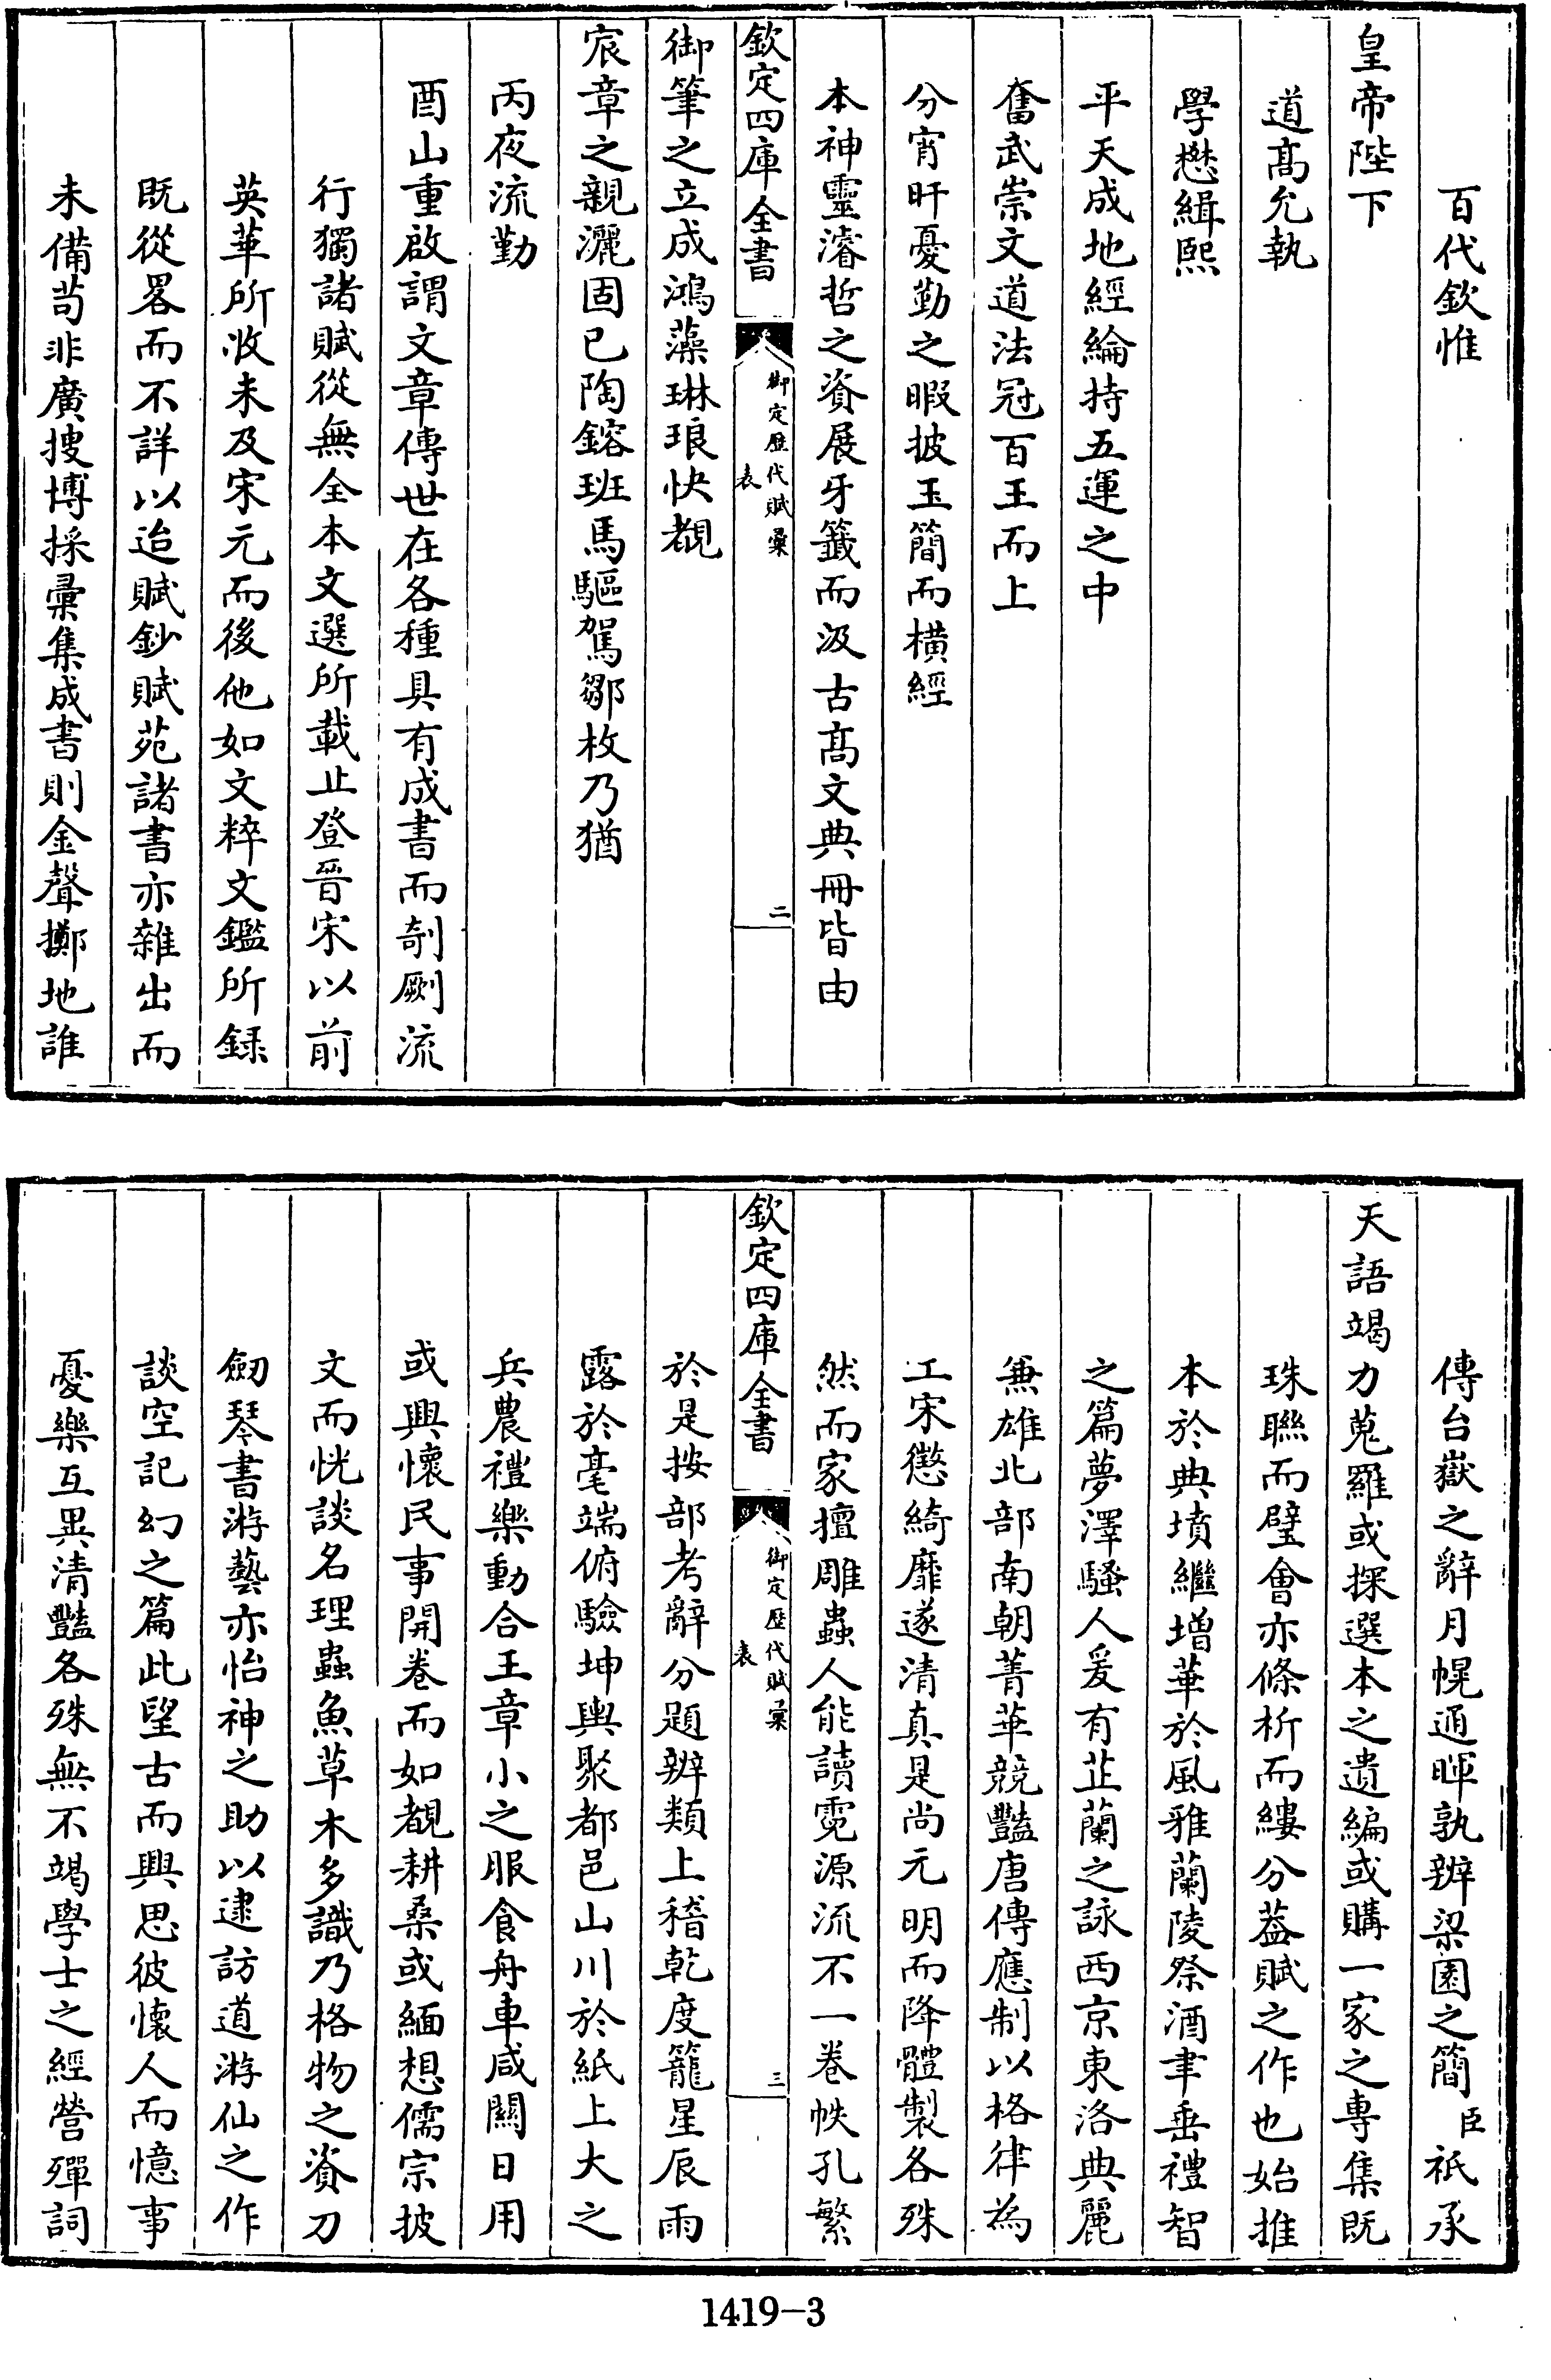 百代欽惟
皇帝陛下
道髙允執
學懋緝熙
平天成地經綸持五運之中
奮武崇文道法冠百王而上
分宵旰憂勤之暇披玉簡而横經
本神靈濬哲之資展牙籖而汲古髙文典冊皆由
欽定四庫全書
御定歴代賦彙
表
二
御筆之立成鴻藻琳琅快覩
宸章之親灑固已陶鎔班馬驅駕鄒枚乃猶
丙夜流勤
酉山重啟謂文章傳世在各種具有成書而剞劂流
行獨諸賦從無全本文選所載止登晉宋以前
英華所收未及宋元而後他如文粹文鑑所録
既從畧而不詳以迨賦鈔賦苑諸書亦雜出而
未備茍非廣搜博採彚集成書則金聲擲地誰
傳台嶽之辭月幌通暉孰辨梁園之簡臣祇承
天語竭力蒐羅或採選本之遺編或購一家之專集既
珠聯而璧會亦條析而縷分葢賦之作也始推
本於典墳繼增華於風雅蘭陵祭酒聿垂禮智
之篇夢澤騷人爰有芷蘭之詠西京東洛典麗
兼雄北部南朝菁華競豔唐傳應制以格律為
工宋懲綺靡遂清真是尚元明而降體製各殊
然而家擅雕蟲人能讀霓源流不一卷帙孔繁
欽定四庫全書
御定歴代賦彙
表
三
於是按部考辭分題辨類上稽乾度籠星辰雨
露於毫端俯驗坤輿聚都邑山川於紙上大之
兵農禮樂動合王章小之服食舟車咸關日用
或興懷民事開卷而如覩耕桑或緬想儒宗披
文而恍談名理蟲魚草木多識乃格物之資刀
劒琴書游藝亦怡神之助以逮訪道游仙之作
談空記幻之篇此望古而興思彼懷人而憶事
憂樂互異清豔各殊無不竭學士之經營殫詞
1419-3